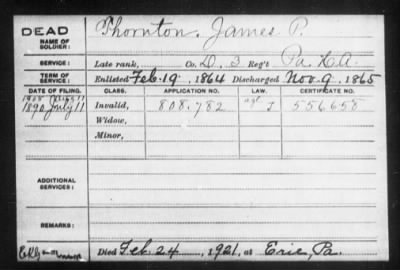 DEAD
NAME OF SOLDIER: Thornton, James P.
SERVICE: Late rank, Co. D. 3 Reg't Pa. H.A.
TERM OF SERVICE: Enlisted Feb. 19, 1864 Discharged Nov. 9, 1865
DATE OF FILING. CLASS. APPLICATION NO. LAW. CERTIFICATE NO.
1890 July 11 Invalid, 808.782 J 556658
Widow,
Minor,
ADDITIONAL SERVICES:
REMARKS:
Died Feb. 24, 1921, at Erie, Pa.